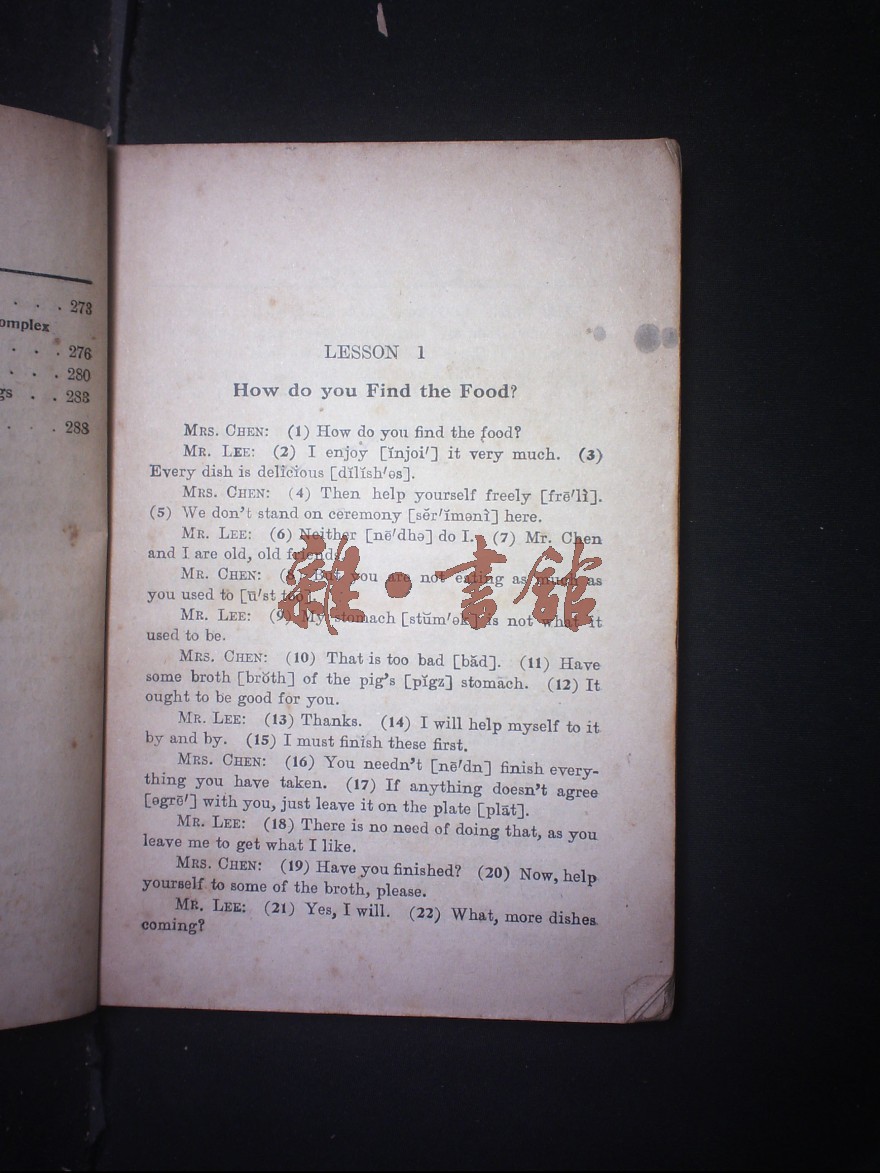 . . . 273
omplex
. . . 276
. . . 280
gs . . 283
. . 288
LESSON 1
How do you Find the Food?
MRS. CHEN: (1) How do you find the food?
MR. LEE: (2) I enjoy [ĭnjoi′] it very much. (3)
Every dish is delicious [dĭlĭsh′əs].
MRS. CHEN: (4) Then help yourself freely [frē′lĭ].
(5) We don't stand on ceremony [sĕr′ĭmənĭ] here.
MR. LEE: (6) Neither [nē′dhə] do I. (7) Mr. Chen
and I are old, old friends.
MR. CHEN: (8) But you are not eating as much as
you used to [ū′st too].
MR. LEE: (9) My stomach [stŭm′ək] is not what it
used to be.
MRS. CHEN: (10) That is too bad [băd]. (11) Have
some broth [brŏth] of the pig's [pĭgz] stomach. (12) It
ought to be good for you.
MR. LEE: (13) Thanks. (14) I will help myself to it
by and by. (15) I must finish these first.
MRS. CHEN: (16) You needn't [nē′dn] finish every-
thing you have taken. (17) If anything doesn't agree
[əgrē′] with you, just leave it on the plate [plāt].
MR. LEE: (18) There is no need of doing that, as you
leave me to get what I like.
MRS. CHEN: (19) Have you finished? (20) Now, help
yourself to some of the broth, please.
MR. LEE: (21) Yes, I will. (22) What, more dishes
coming?
雜·書館